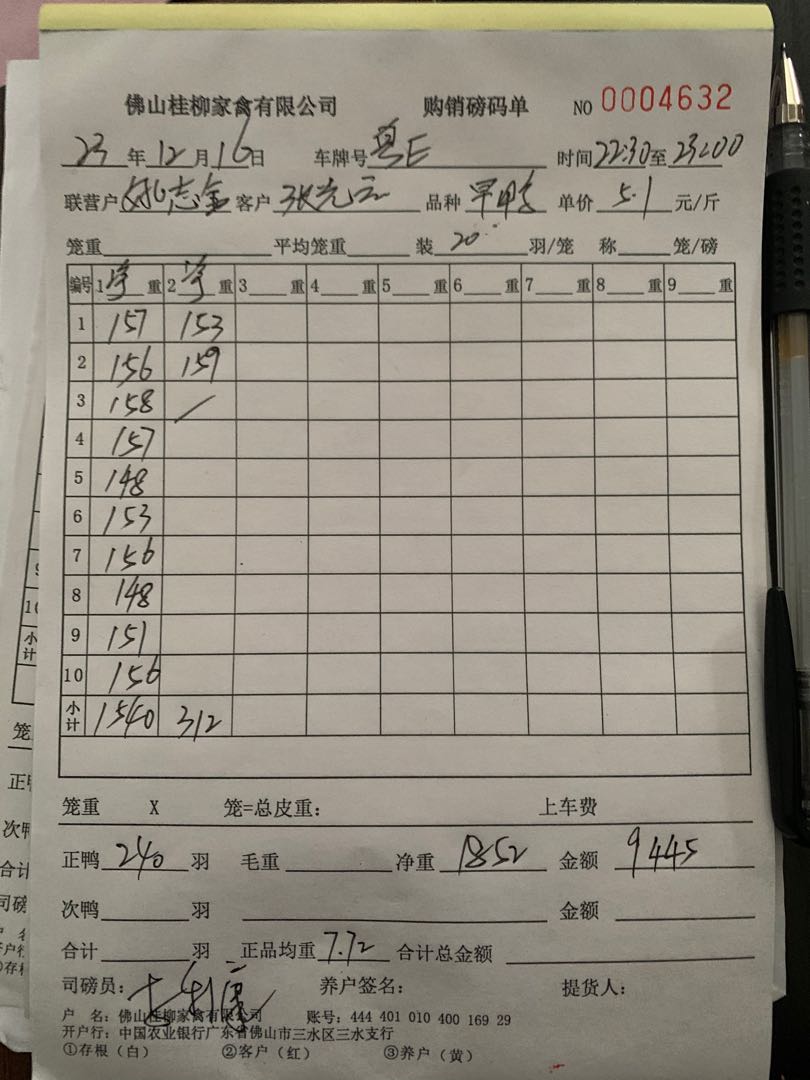 佛山桂柳家禽有限公司 购销磅码单 NO 0004632
23年12月16日 车牌号粤E 时间22:30至23:00
联营户 志金 客户张光云 品种 单价5.1元/斤
笼重 平均笼重 装20羽/笼 称 笼/磅
编号 1 重 2 重 3 重 4 重 5 重 6 重 7 重 8 重 9 重
1 157 153
2 156 159
3 158 /
4 157
5 148
6 153
7 156
8 148
9 151
10 156
小计 1540 312
笼重 X 笼=总皮重: 上车费
正鸭240羽 毛重 净重1852 金额9445
次鸭 羽 金额
合计 羽 正品均重7.72 合计总金额
司磅员: 养户签名: 提货人:
户 名: 佛山桂柳家禽有限公司 账号: 444 401 010 400 169 29
开户行: 中国农业银行广东省佛山市三水区三水支行
①存根(白) ②客户(红) ③养户(黄)